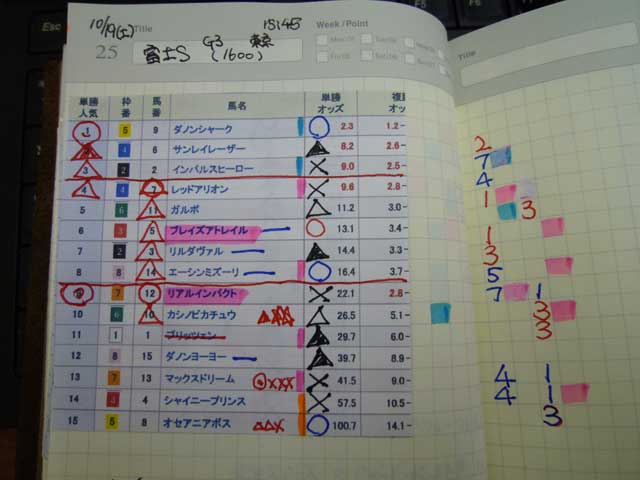 10/19(土) Title 15145 Week / Point
25 富士S G3 東京 (1600)
単勝人気 枠番 馬番 馬名 単勝オッズ 複勝
1 5 9 ダノンシャーク 2.3 1.2-
2 4 6 サンレイレーザー 8.2 2.6-
3 2 2 インパルスヒーロー 9.0 2.5-
4 4 7 レッドアリオン 9.6 2.8-
5 6 11 ガルボ 11.2 3.0-
6 3 5 ブレイズアトレイル 13.1 3.4-
7 2 3 リルダヴァル 14.4 3.3-
8 8 14 エーシンミズーリ 16.4 3.7-
9 7 12 リアルインパクト 22.1 2.8-
10 6 10 カシノピカチュウ 26.5 5.1-
11 1 1 ブリッツェン 29.7 6.0-
12 8 15 ダノンヨーヨー 39.7 8.9-
13 7 13 マックスドリーム 41.5 9.0-
14 3 4 シャイニープリンス 57.5 10.5-
15 5 8 オセアニアボス 100.7 14.1-
Title
2
7
4
1
3
1
3
5
7 1
3
3
4 1
4 1
3
Esc